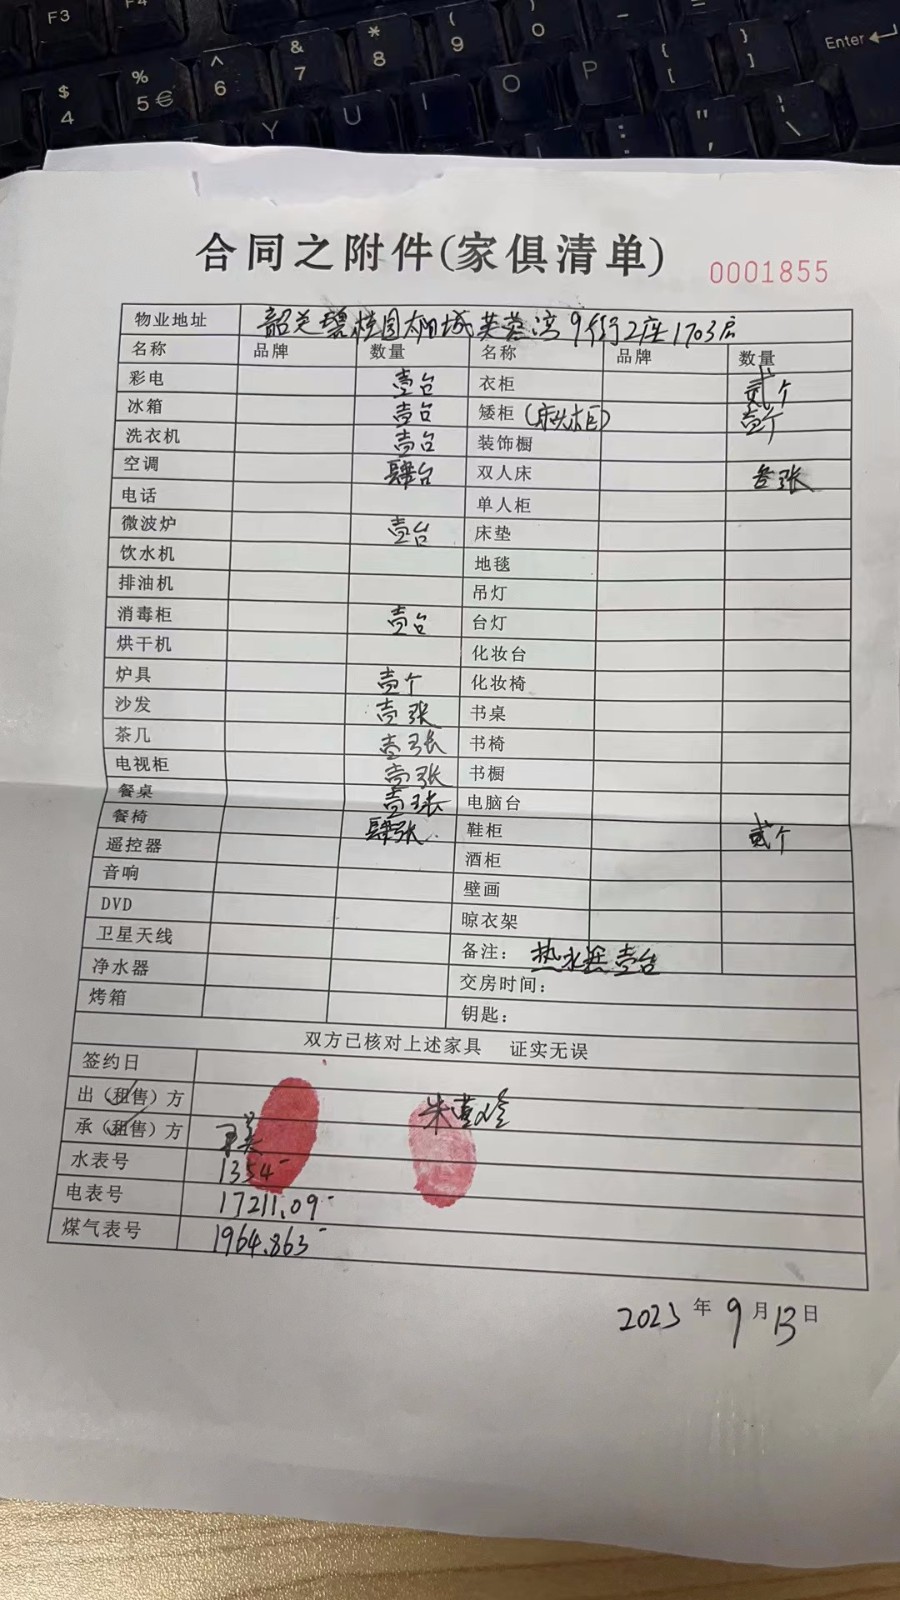 F3
F4
$ 4
% 5 €
^ 6
& 7
* 8
( 9
) 0
Enter
Y U I O P { [ } ]
合同之附件(家俱清单) 0001855
物业地址 韶关碧桂园太阳城芙蓉湾9街2座1703房
名称 品牌 数量 名称 品牌 数量
彩电 壹台 衣柜 贰个
冰箱 壹台 矮柜(床头柜) 壹个
洗衣机 壹台 装饰橱
空调 肆台 双人床 张
电话 单人柜
微波炉 壹台 床垫
饮水机 地毯
排油机 吊灯
消毒柜 壹台 台灯
烘干机 化妆台
炉具 壹个 化妆椅
沙发 壹张 书桌
茶几 壹张 书椅
电视柜 壹张 书橱
餐桌 壹张 电脑台
餐椅 肆张 鞋柜 贰个
遥控器 酒柜
音响 壁画
DVD 晾衣架
卫星天线 备注: 热水器壹台
净水器 交房时间:
烤箱 钥匙:
双方已核对上述家具 证实无误
签约日
出(租售)方 朱
承(租售)方
水表号 1354
电表号 17211.09
煤气表号 1964.863
2023年9月13日